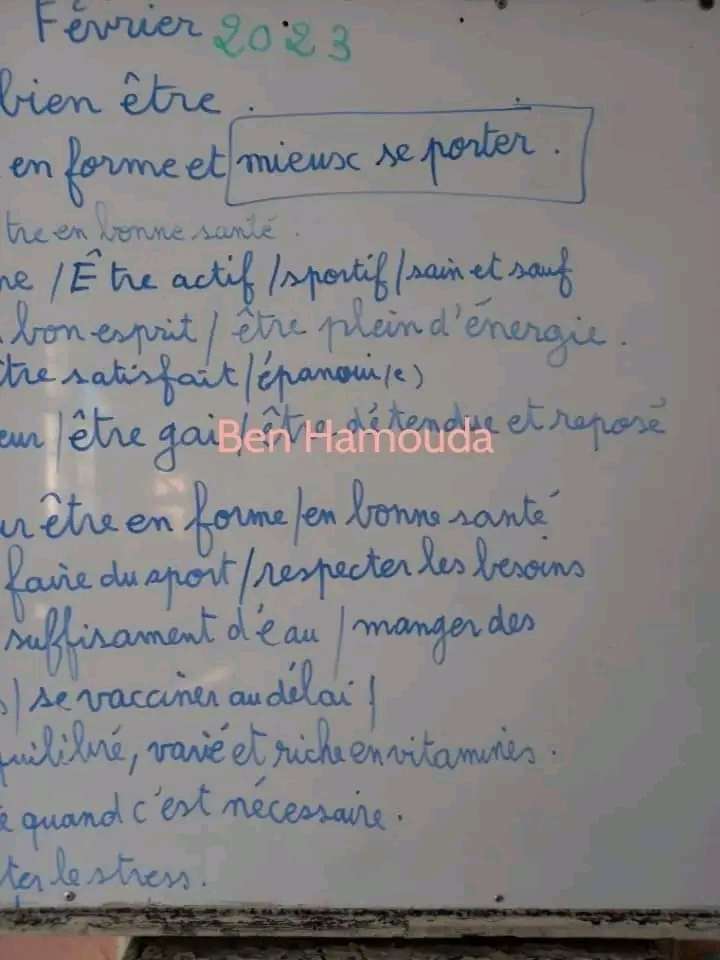 Février 2023
bien être.
en forme et mieux se porter.
tre en bonne santé.
re / Être actif / sportif / sain et sauf
bon esprit / être plein d'énergie.
tre satisfait / épanoui(e)
eur / être gai / être détendue et reposé
Ben Hamouda
ur être en forme / en bonne santé
faire du sport / respecter les besoins
suffisament d'eau / manger des
s / se vacciner au délai /
quilibré, varié et riche en vitamines.
é quand c'est nécessaire.
ter le stress.